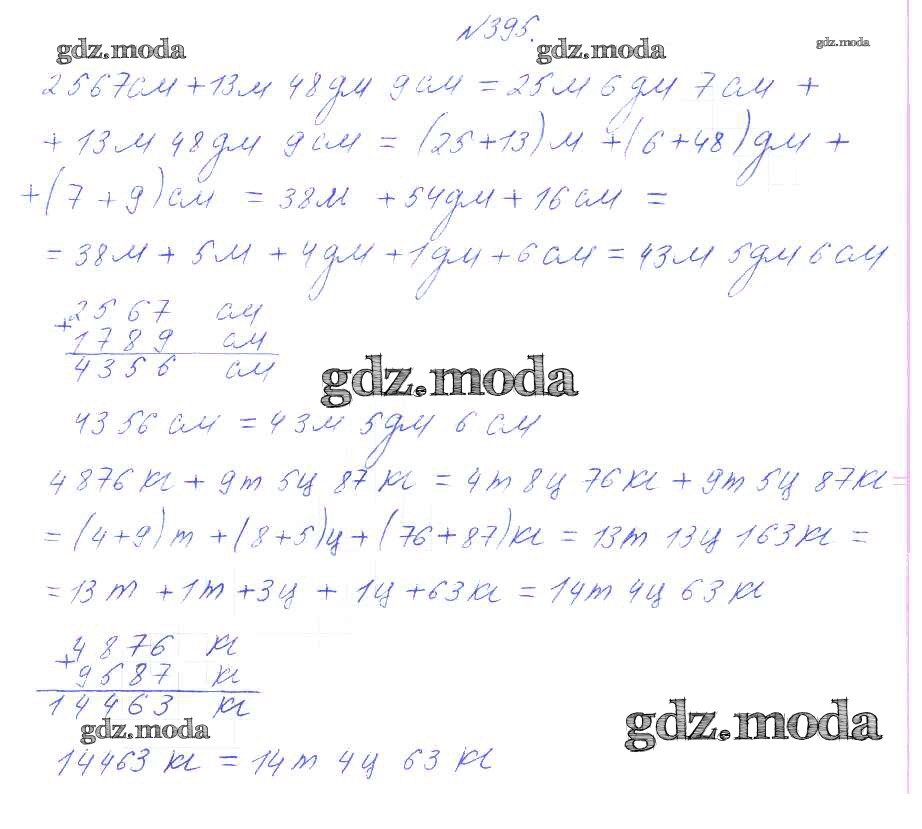 №395.
gdz.moda gdz.moda gdz.moda
2567см + 13м 48дм 9см = 25м 6дм 7см +
+ 13м 48дм 9см = (25+13)м + (6+48)дм +
+(7+9)см = 38м + 54дм + 16см =
= 38м + 5м + 4дм + 1дм + 6см = 43м 5дм 6см
+ 2567 см
1789 см
4356 см
gdz.moda
4356см = 43м 5дм 6см
4876кг + 9т 5ц 87кг = 4т 8ц 76кг + 9т 5ц 87кг =
= (4+9)т + (8+5)ц + (76+87)кг = 13т 13ц 163кг =
= 13т + 1т + 3ц + 1ц + 63кг = 14т 4ц 63кг
+ 4876 кг
9587 кг
14463 кг
gdz.moda gdz.moda
14463 кг = 14т 4ц 63 кг